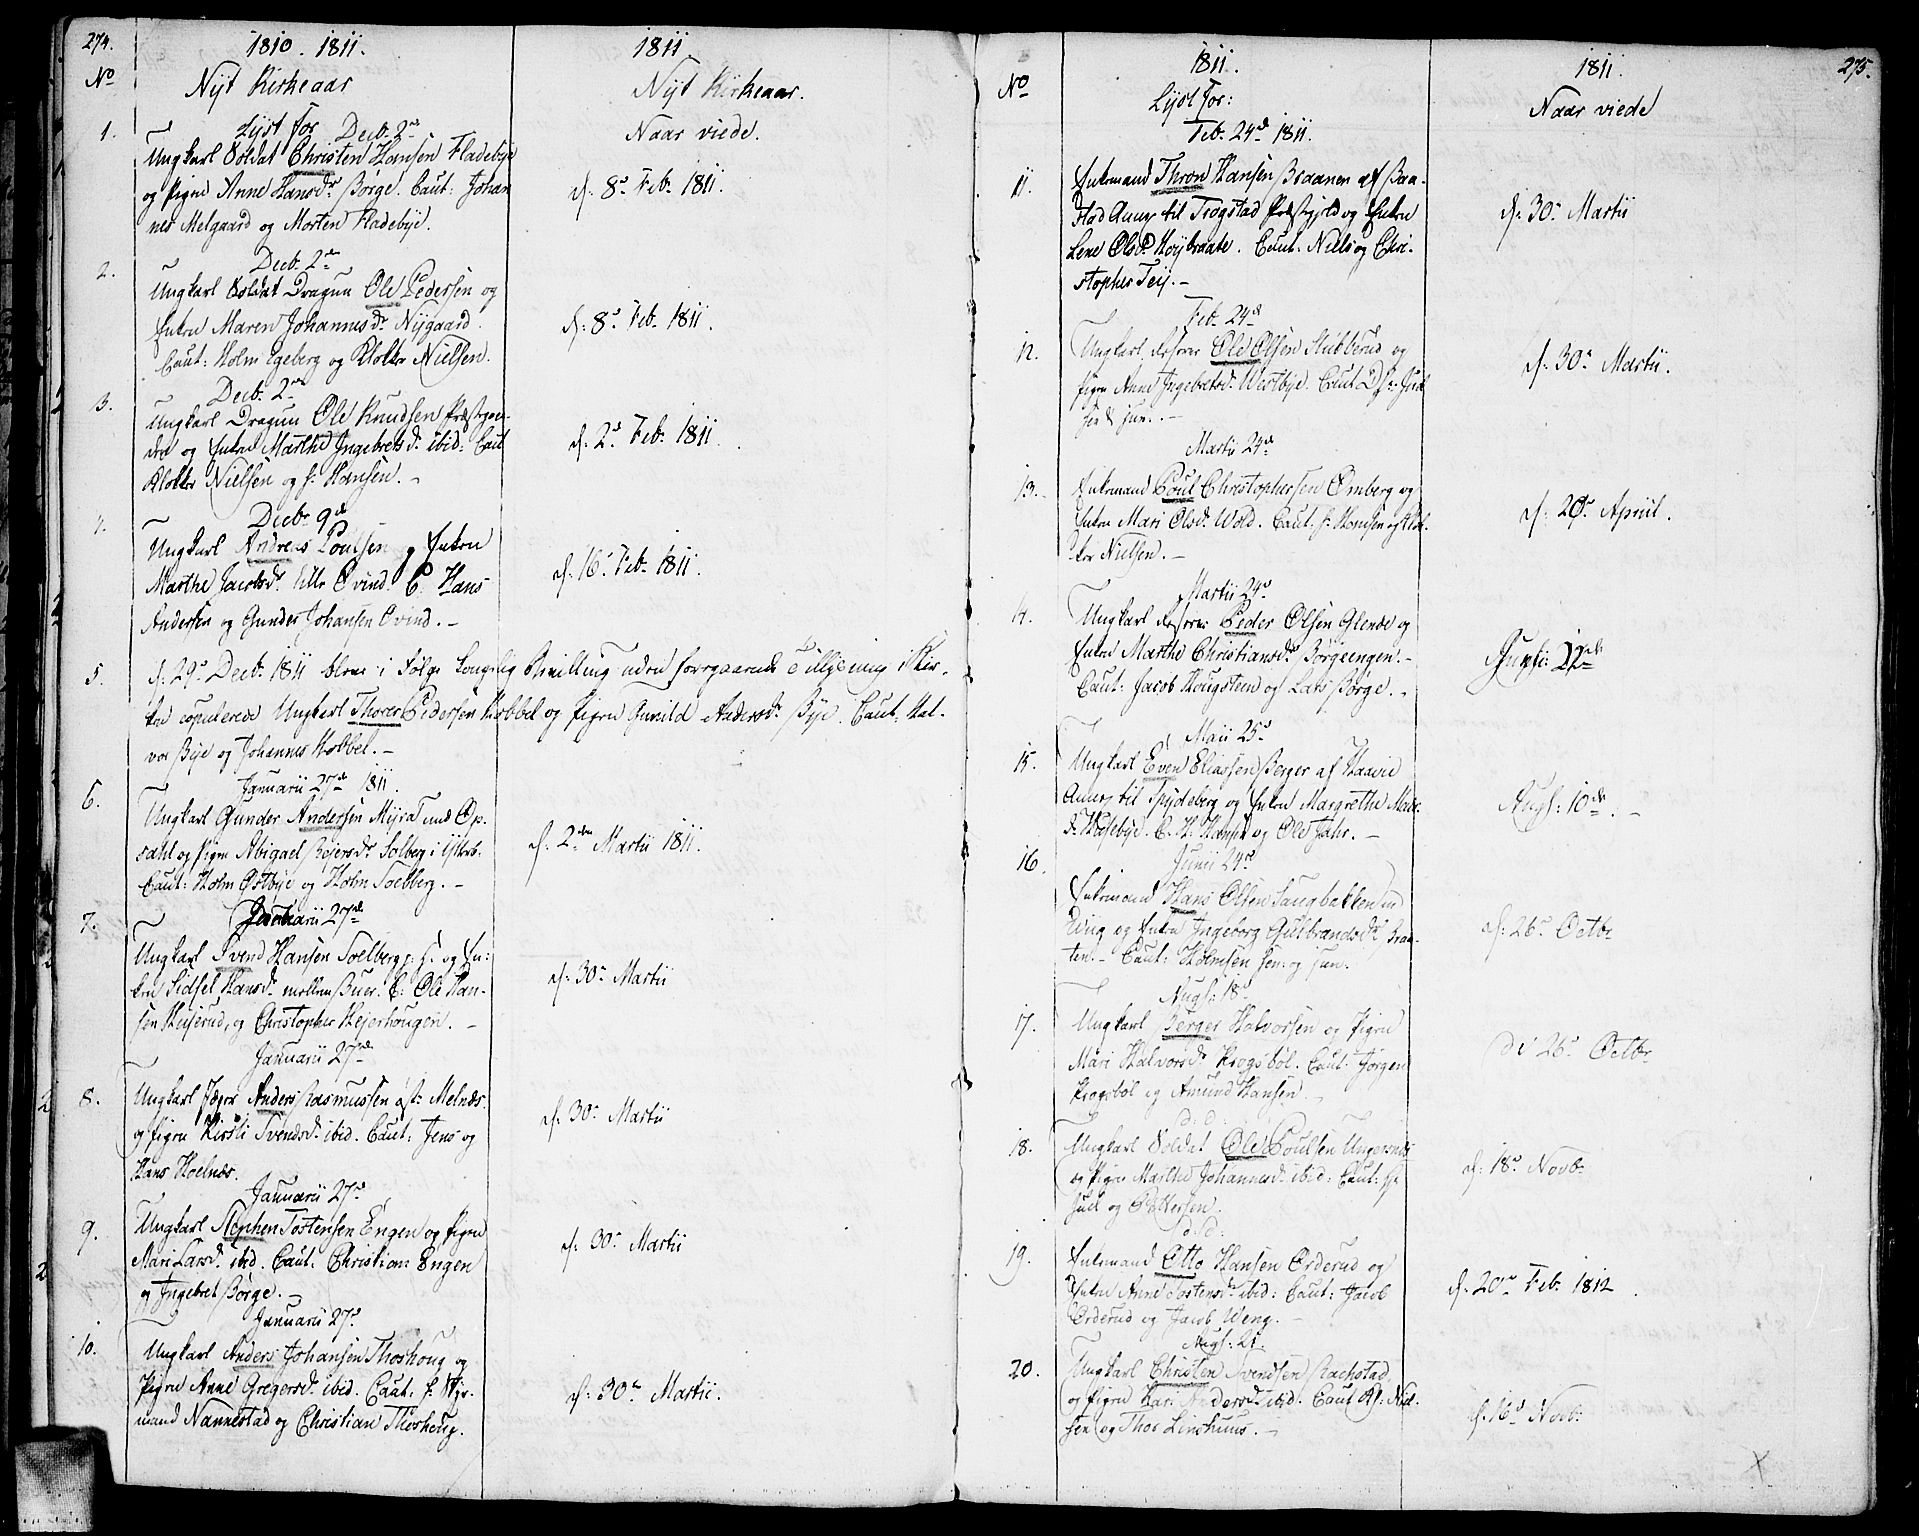 274.
1810. 1811.
No
Nyt Kirkeaar
Lyst for
1. Decb. 2de
Ungkarl Soldat Christen Hansen Fladebye
og Pigen Anne Hansdr Børge. Caut: Johan
nes Melgaard og Morten Fladebye.
Decb. 2de
2. Ungkarl Soldat Dragun Ole Pedersen og
Enken Maren Johannesdr Nygaard.
Caut: Holm Egeberg og Klokker Nielsen.
Decb. 2de
3. Ungkarl Dragun Ole Knudsen Præstegaar-
den og Enken Marthe Ingebretsdr ibid: Caut
Klokker Nielsen og H. Hansen.
Decb. 9de
4. Ungkarl Andreas Poulsen og Enken
Marthe Jacobsdr lille Øvind. C: Hans
Andersen og Gunder Johansen Øvind.
5. d: 29de Decb. 1811 bleve i Følge Kongelig Bevilling uden foregaaende Tillysning i Kir-
ken copulerede Ungkarl Thorer Pedersen Kobbel og Pigen Gunild Andersdr Bye. Caut: Hal-
vor Bye og Johannes Kobbel.
Januarii 27de 1811.
6. Ungkarl Gunder Andersen Myra und Op-
sahl og Pigen Abigael Beiersdr Solberg i
Caut: Holm Østbye og Holm Soelberg.
Januarii 27de
7. Ungkarl Svend Hansen Soelberg og En-
ken Sidsel Hansdr mellem Buer. C: Ole Han-
sen Huserud, og Christopher Hejerhougen.
Januarii 27de
8. Ungkarl Jæger Anders Rasmussen Melnæs
og Pigen Kirsti Svendsdr ibid. Caut: Jens og
Hans Hoelnæs.
Januarii 27de
9. Ungkarl Stephen Tostensen Engen og Pigen
Mari Larsdr ibid. Caut. Christian Engen
og Ingebret Børge.
Januarii 27de
10. Ungkarl Anders Johansen Thoshoug og
Pigen Anne Gregersdr ibid. Caut:
mand Nannestad og Christian Thoshoug.
1811.
Nyt Kirkeaar.
Naar viede.
d: 8de Feb. 1811.
d: 8de Feb. 1811.
d. 2de Feb. 1811.
d. 16de Feb. 1811.
d. 2den Martii 1811.
d: 30te Martii
d: 30te Martii
d: 30te Martii
d: 30te Martii.
No
1811.
Lyst for:
Feb. 24de 1811.
11. Enkemand Thron Hansen Braanen af Baa-
stad Annex til Trøgstad Præstegield og Enken
Lene Olsdr Høybraate. Caut. Niels og Chri-
stopher Teij.
Feb. 24de
12. Ungkarl Ole Olsen Stubberud og
Pigen Anne Ingebretsdr Westbye. Caut
jun.
Martii 24de
13. Enkemand Poul Christophersen Omberg og
Enken Mari Olsdr Wold. Caut: H. Hansen og Klok-
ker Nielsen.
Martii 24de
14. Ungkarl Peder Olsen Glende og
Enken Marthe Christiansdr Børgeengen.
Caut: Jacob Hougsteen og Lars Børge.
Maii 25de
15. Ungkarl Even Eliassen Berger af Haavid
Annex til Spydeberg og Enken Margrethe
Hosebye. C. H. Hansen og Ole Jahr.
Junii 24de
16. Enkemand Hans Olsen Taugbakken
og Enken Ingeborg Gulbrandsdr Bra-
ten. Caut: Holmsen sen: og jun.
Augs: 18de
17. Ungkarl Berger Halvorsen og Pigen
Mari Halvorsdr Krogsbøl. Caut: Jørgen
Krogsbøl og Amund Hansen.
d: d:
18. Ungkarl Soldat Ole Poulsen Ungersnes
og Pigen Marthe Johannesdr ibid: Caut:
Juel og Pettersen.
d: d:
19. Enkemand Otto Hansen Orderud og
Enken Anne Tostensdr ibid: Caut: Jacob
Orderud og Jacob Weng.
Augs: 21.
20. Ungkarl Christen Svendsen Rachstad
og Pigen Kari Andersdr ibid. Caut Kl: Niel-
sen og Thor Linshuus.
1811.
275.
Naar viede
d: 30te Martii
d: 30te Martii.
d: 20de April.
22de
Augs: 10de.
d: 26de Octbr
d: 26de Octbr
d: 18de Novb.
d. 20de Feb. 1812.
d. 16de Novb.